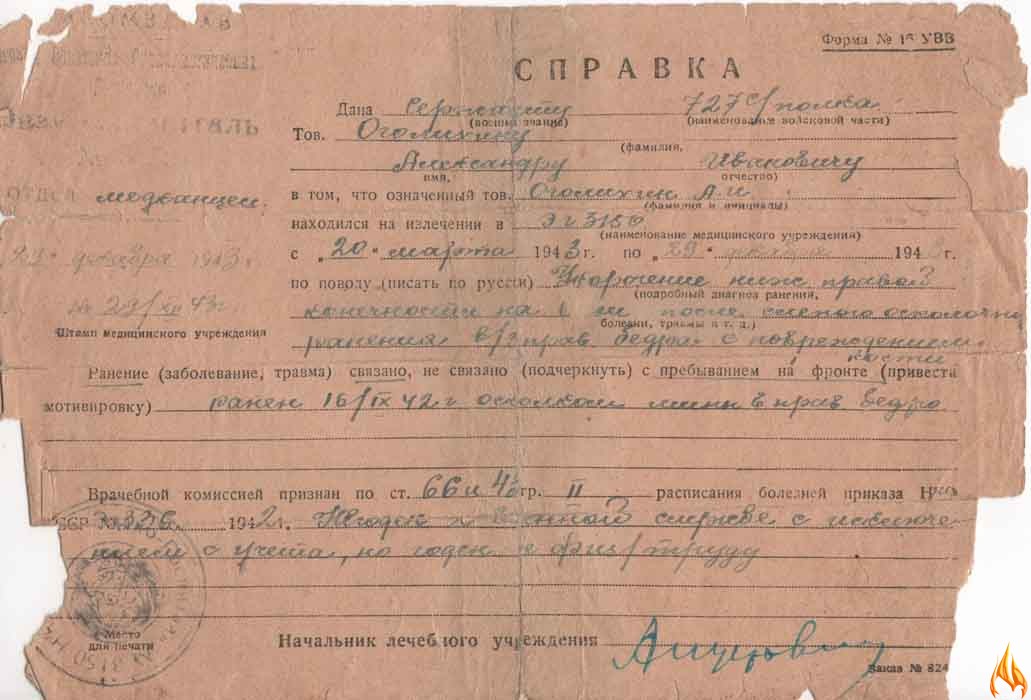 Форма № 16 УВВ
СПРАВКА
Дана Сержанту 727 с/полка
(военное звание) (наименование войсковой части)
Тов. Оголихину
(фамилия,
Александру Ивановичу
имя, отчество)
ОТДЕЛ медканцел.
в том, что означенный тов. Оголихин А.И.
(фамилия и инициалы)
находился на излечении в ЭГ 3150
(наименование медицинского учреждения)
29 " декабря 1943 г.
с " 20 " марта 1943 г. по " 29 " декабря 1943 г.
по поводу (писать по русски) Укорочение ниж правой
(подробный диагноз ранения,
№ 29/XII 43 г
конечности на см после слепого осколочн
болезни, травмы и т. д.)
Штамп медицинского учреждения
ранения в/3 прав. бедра с повреждением
кости
Ранение (заболевание, травма) связано, не связано (подчеркнуть) с пребыванием на фронте (привести
мотивировку) ранен 16/IX 42 г осколком мины в прав бедро
Врачебной комиссией признан по ст. 66 и гр. II расписания болезней приказа
ССР № 336 1942 г. Негоден к военной службе с исключе
нием с учета, но годен к физ/труду
Место
для печати
№ 3150
Начальник лечебного учреждения
Заказ № 824